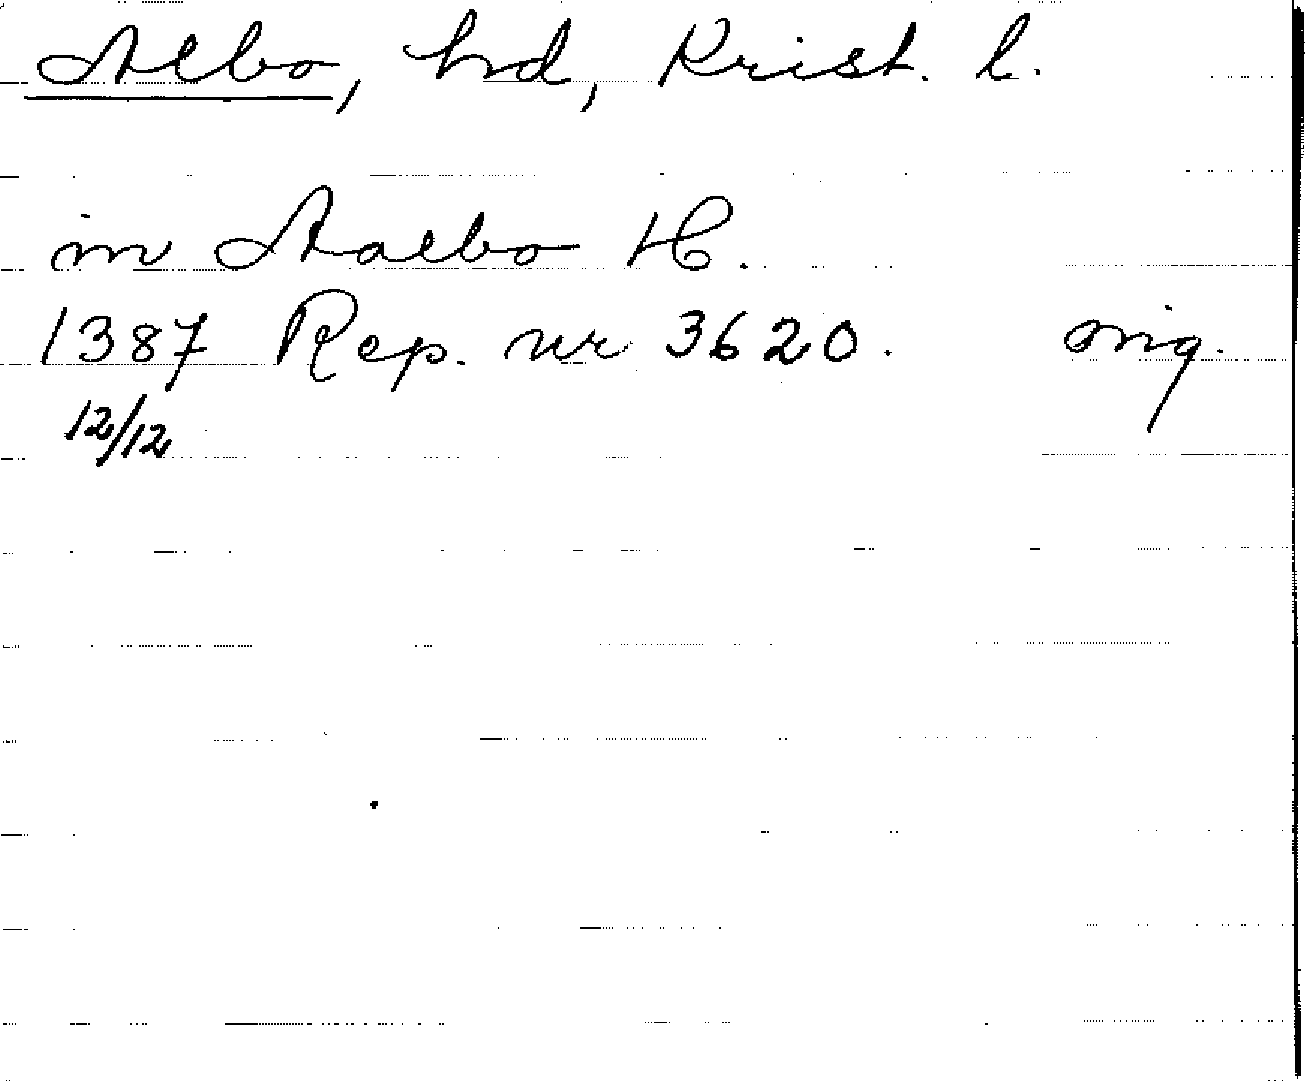 Albo, hd, Krist. l.
in Aalbo H.
1387 Rep. nr 3620. orig.
12/12